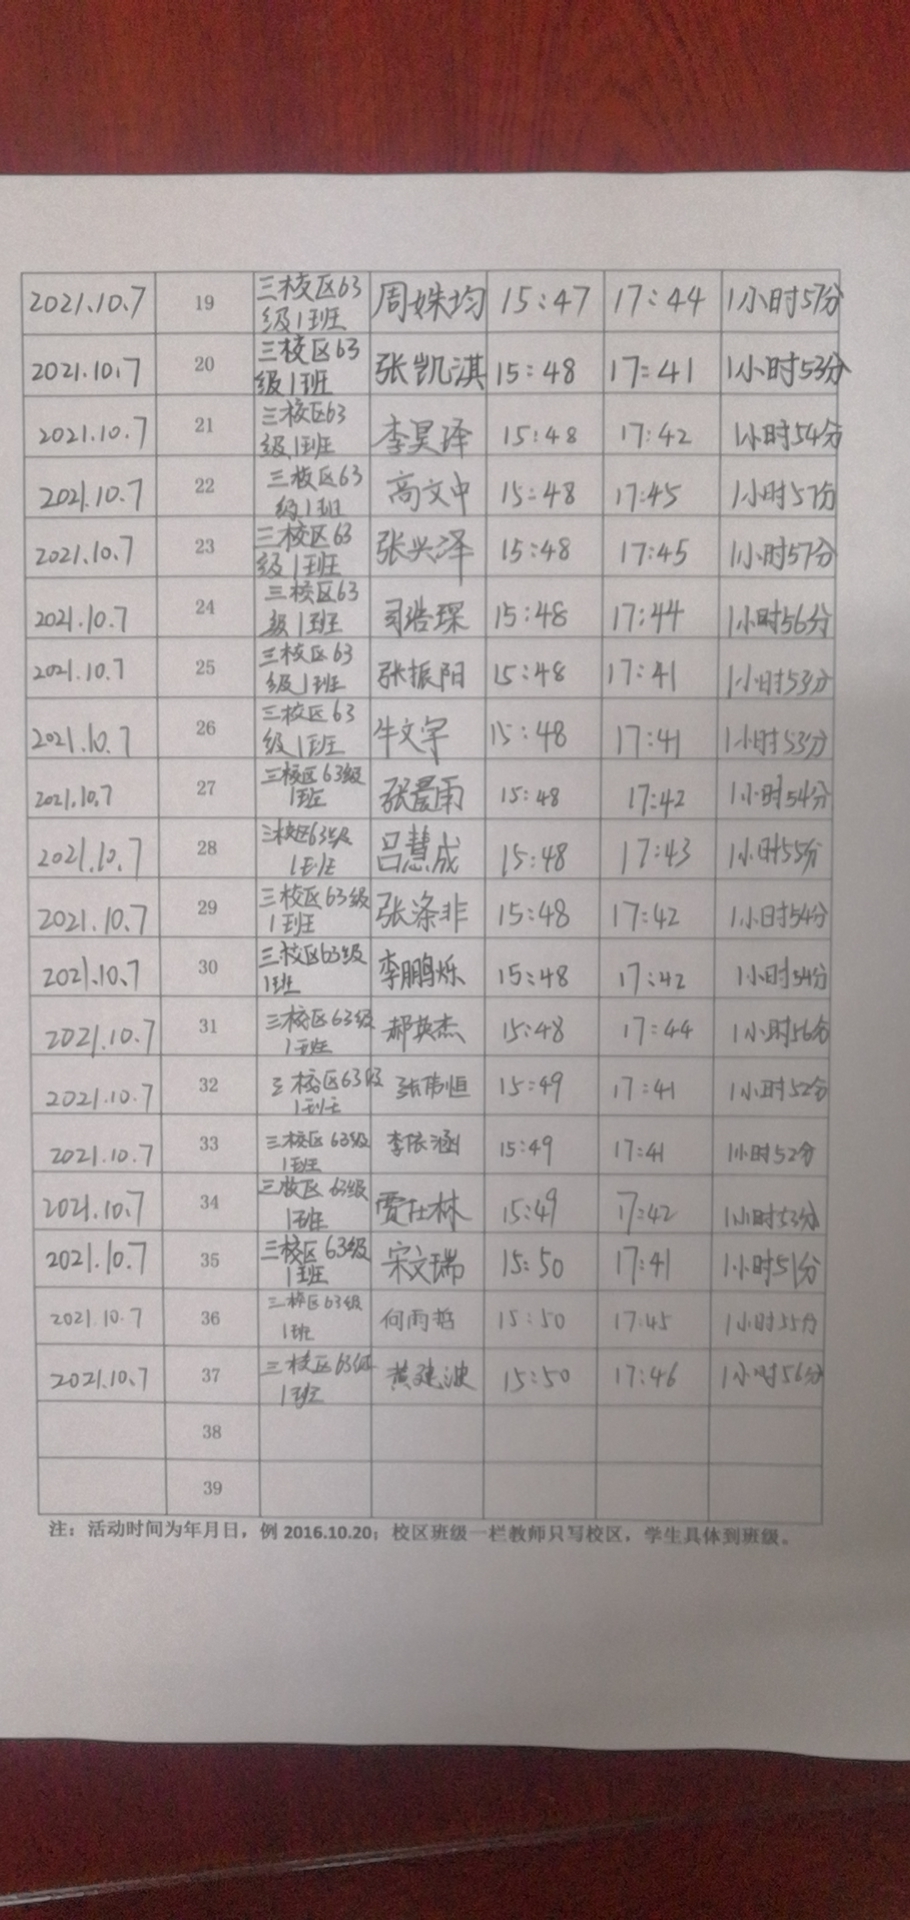 2021.10.7 19 三校区63级1班 周姝均 15:47 17:44 1小时57分
2021.10.7 20 三校区63级1班 张凯淇 15:48 17:41 1小时53分
2021.10.7 21 三校区63级1班 李昊泽 15:48 17:42 1小时54分
2021.10.7 22 三校区63级1班 高文中 15:48 17:45 1小时57分
2021.10.7 23 三校区63级1班 张兴泽 15:48 17:45 1小时57分
2021.10.7 24 三校区63级1班 司浩琛 15:48 17:44 1小时56分
2021.10.7 25 三校区63级1班 张振阳 15:48 17:41 1小时53分
2021.10.7 26 三校区63级1班 牛文宇 15:48 17:41 1小时53分
2021.10.7 27 三校区63级1班 15:48 17:42 1小时54分
2021.10.7 28 三校区63级1班 吕慧成 15:48 17:43 1小时55分
2021.10.7 29 三校区63级1班 张涤非 15:48 17:42 1小时54分
2021.10.7 30 三校区63级1班 李鹏烁 15:48 17:42 1小时54分
2021.10.7 31 三校区63级1班 郝英杰 15:48 17:44 1小时56分
2021.10.7 32 三校区63级1班 张伟恒 15:49 17:41 1小时52分
2021.10.7 33 三校区63级1班 李依涵 15:49 17:41 1小时52分
2021.10.7 34 三校区63级1班 贾仕林 15:49 17:42 1小时53分
2021.10.7 35 三校区63级1班 宋文瑞 15:50 17:41 1小时51分
2021.10.7 36 三校区63级1班 何雨哲 15:50 17:45 1小时55分
2021.10.7 37 三校区63级1班 黄建波 15:50 17:46 1小时56分
38
39
注：活动时间为年月日，例 2016.10.20；校区班级一栏教师只写校区，学生具体到班级。